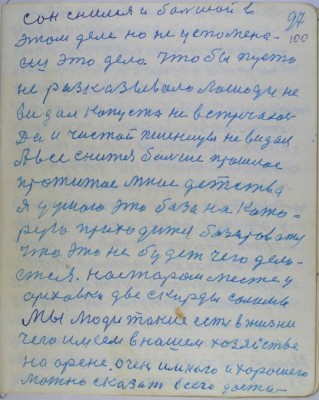 97
сон снился и большой в 100
этом деле но не успомена-
еш это дело что бы пусто
не разказывало лошоди не
видал капуста не встречалос
Да и чистой пшеницы не видал
Мне снится больше прошлое
прожитое мние детства
я думаю это база на кото-
рую приходится базироват
что это не будет чего дело-
на старом месте у
ореховка две скирды соломы
Мы люди такие есть в жизни
чего имеем в нашем хозяйстве
на арене. очен много и хорошего
можно сказат всего доста-